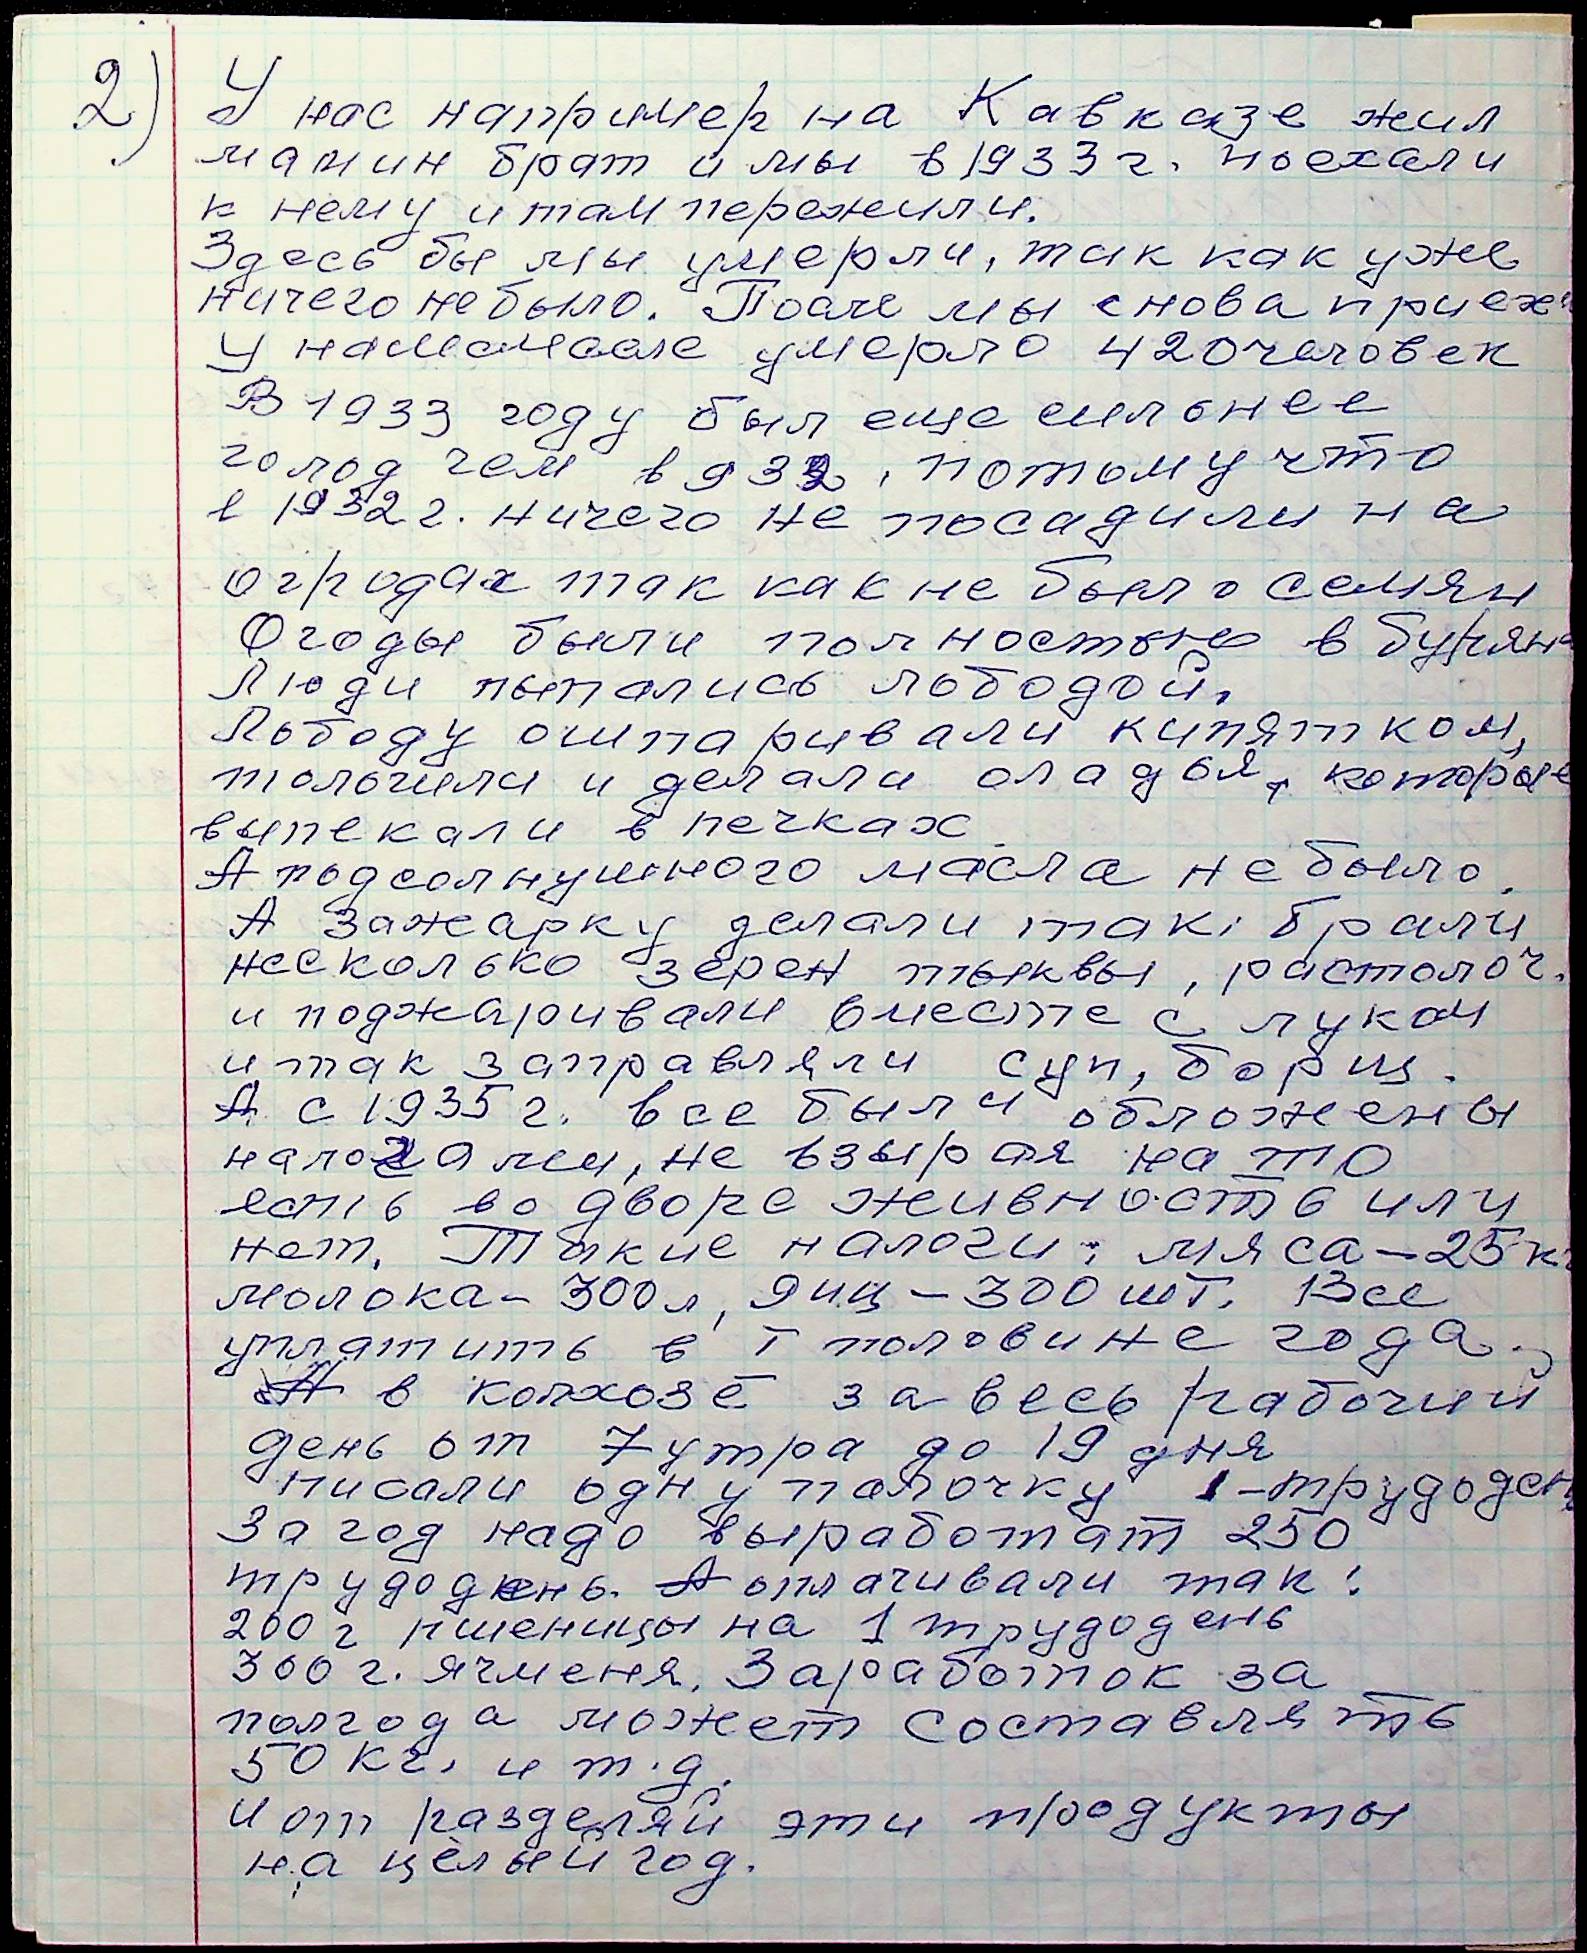 2) У нас например на Кавказе жил
мамин брат и мы в 1933 г. поехали
к нему и там пережили.
Здесь бы мы умерли, так как уже
ничего не было. После мы снова приеха
У нас умерло 420 человек
В 1933 году был еще сильнее
голод чем в 932, потому что
в 1932 г. ничего не посадили на
огродах так как не было семян
Огоды были полностью в бурян
Люди пытались лободой.
Лободу ошпаривали кипятком,
толочили и делали оладья, которые
выпекали в печках
А подсолнушного масла не было.
А зажарку делали так: брали
несколько зерен тыквы, растолоч.
и поджаривали вместе с луком
и так заправляли суп, борщ.
А с 1935 г. все были обложены
налогами, не взырая на то
есть во дворе живность или
нет. Такие налоги: мяса - 25 кг
молока - 300 л, яиц - 300 шт. Все
уплатить в I половине года.
А в колхозе за весь рабочий
день от 7 утра до 19 дня
писали одну палочку 1 - трудоден
За год надо выработат 250
трудодень. А оплачивали так:
200 г пшеницы на 1 трудодень
300 г. ячменя. Заработок за
полгода может составлять
50 кг. и т.д.
и от разделяй эти продукты
на целый год.